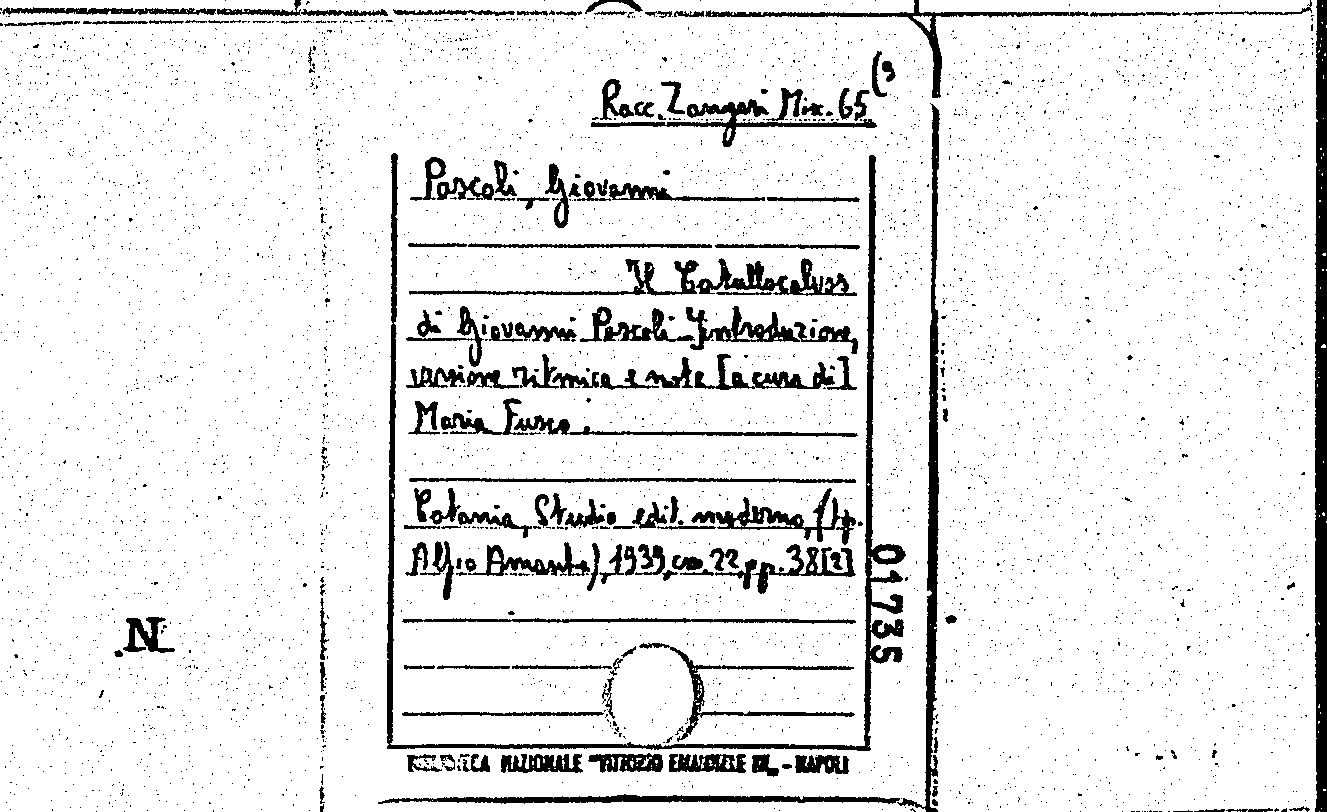 (9
Racc. Zangari Mix. 65
Pascoli, Giovanni
Il Catullocalvos
di Giovanni Pascoli - Introduzione,
versione ritmica e note [a cura di]
Maria Fusco.
Catania, Studio edit. moderno, (tip.
Alfio Amante), 1939, cm. 22, pp. 38 [2]
01735
N
BIBLIOTECA NAZIONALE "VITTORIO EMANUELE III" - NAPOLI